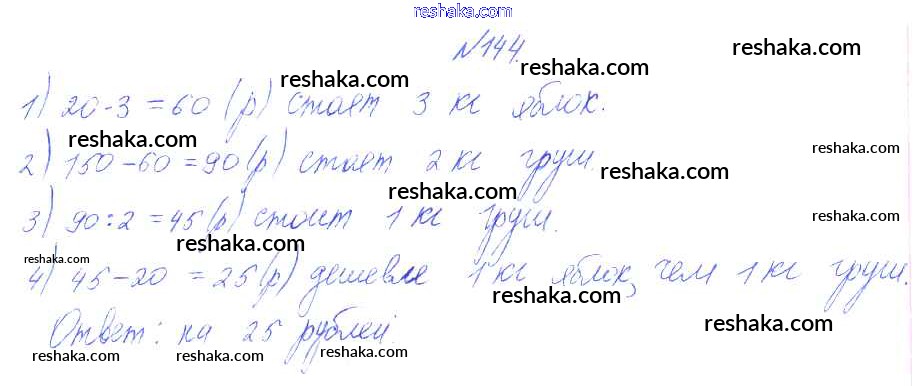 reshaka.com
№144.
reshaka.com reshaka.com
1) 20·3=60 (р) стоят 3 кг яблок.
reshaka.com reshaka.com
2) 150-60=90(р) стоят 2 кг груш.
reshaka.com reshaka.com
3) 90:2=45(р) стоит 1 кг груш.
reshaka.com
reshaka.com reshaka.com
4) 45-20=25(р) дешевле 1 кг яблок, чем 1 кг груш.
reshaka.com
Ответ: на 25 рублей.
reshaka.com
reshaka.com reshaka.com reshaka.com